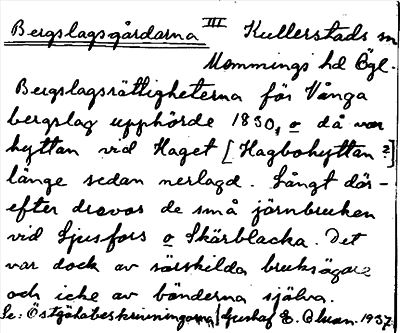 Bergslagsgårdarna III Kullerstads sn
Memmings hd Ögl.
Bergslagsrättigheterna för Vånga
bergslag upphörde 1830, o då var
hyttan vid Haget [Hagbohyttan?]
länge sedan nerlagd. Långt där-
efter drevos de små järnbruken
vid Ljusfors o Skärblacka. Det
var dock av särskilda bruksägare
och icke av bönderna själva.
Se: Östgötabeskrivningarna Gustaf E. 1937.